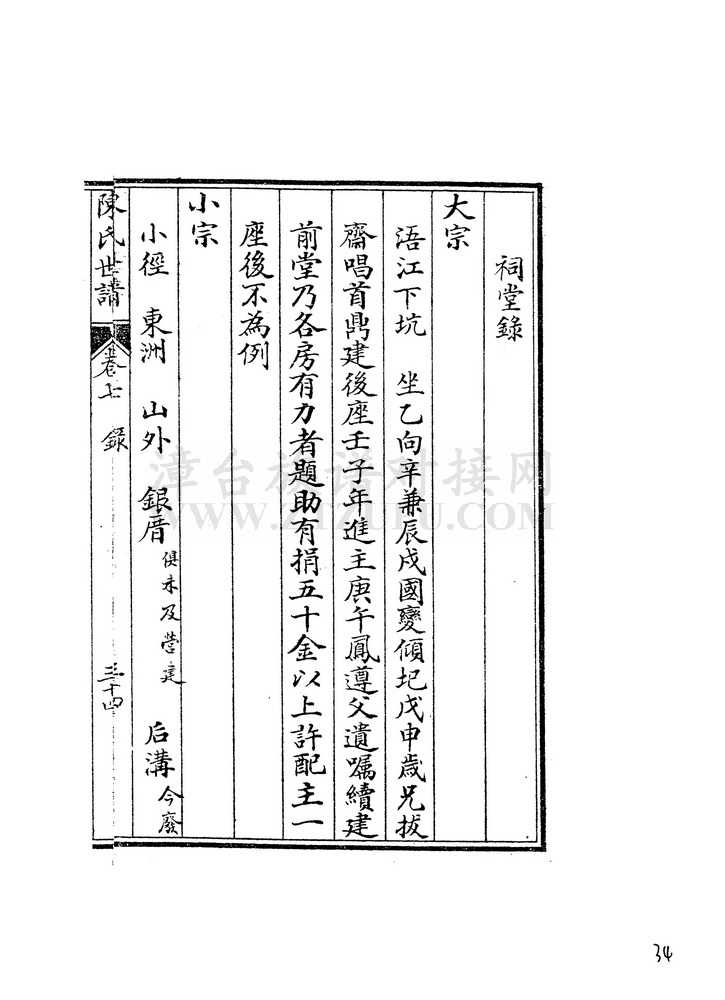 祠堂錄
大宗
浯江下坑 坐乙向辛兼辰戌國變傾圮戊申歲兄拔
齋唱首鼎建後座壬子年進主庚午鳳遵父遺嘱續建
前堂乃各房有力者題助有捐五十金以上許配主一
座後不為例
小宗
小徑 東洲 山外 銀厝 俱未及營建 后溝 今廢
陳氏世譜 卷七 錄 三十四
漳台族谱对接网
34